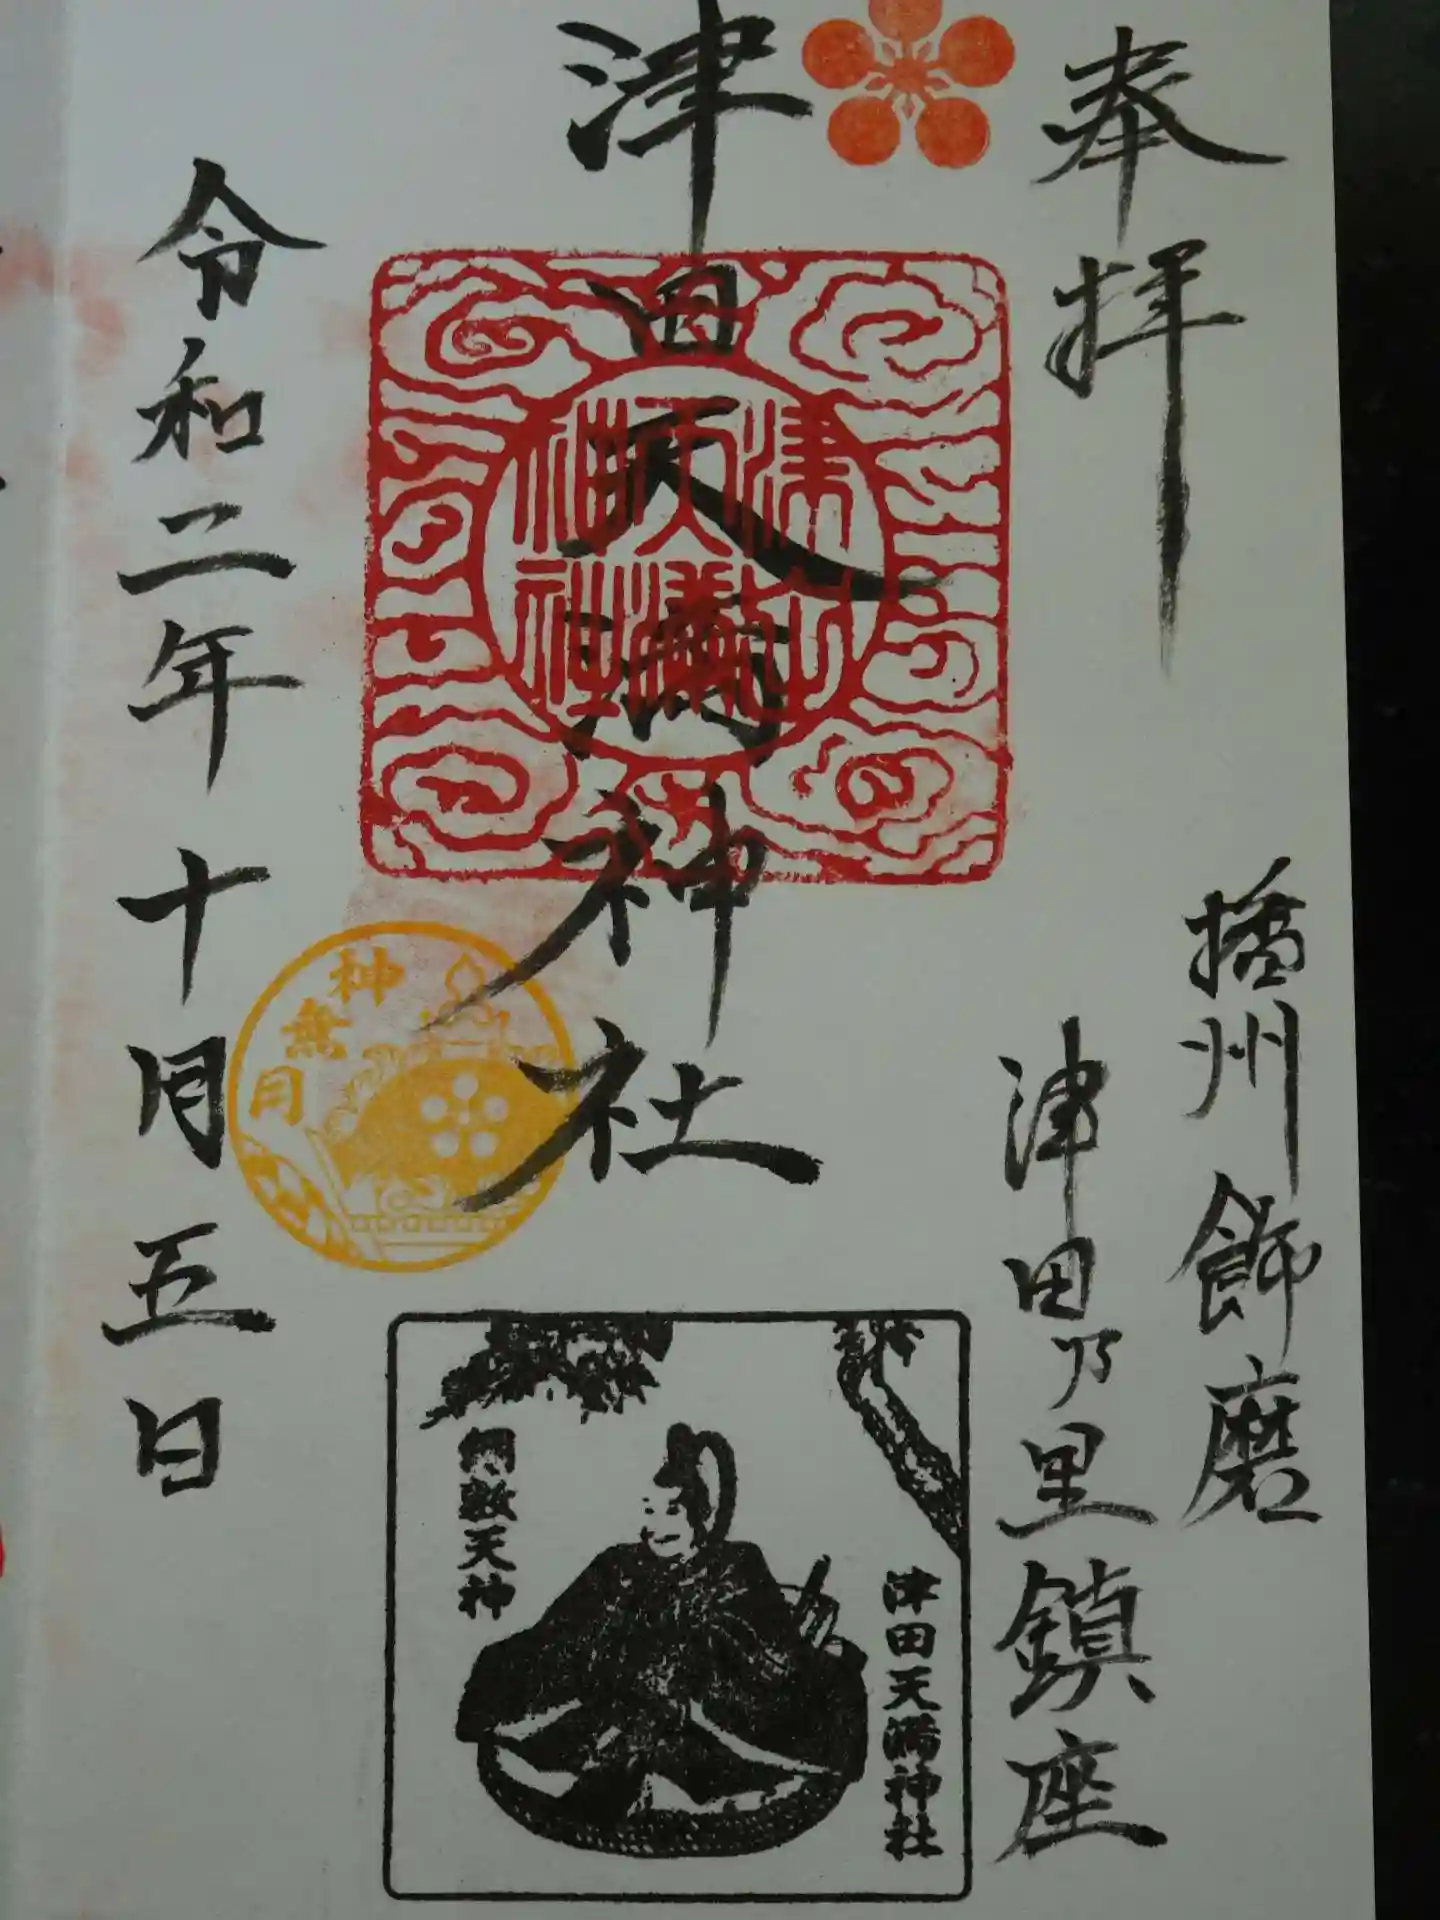 奉拝
播州飾磨
津田乃里鎮座
津田天満神社
津田天満神社
神無月
令和二年十月五日
津田天満神社
綱敷天神